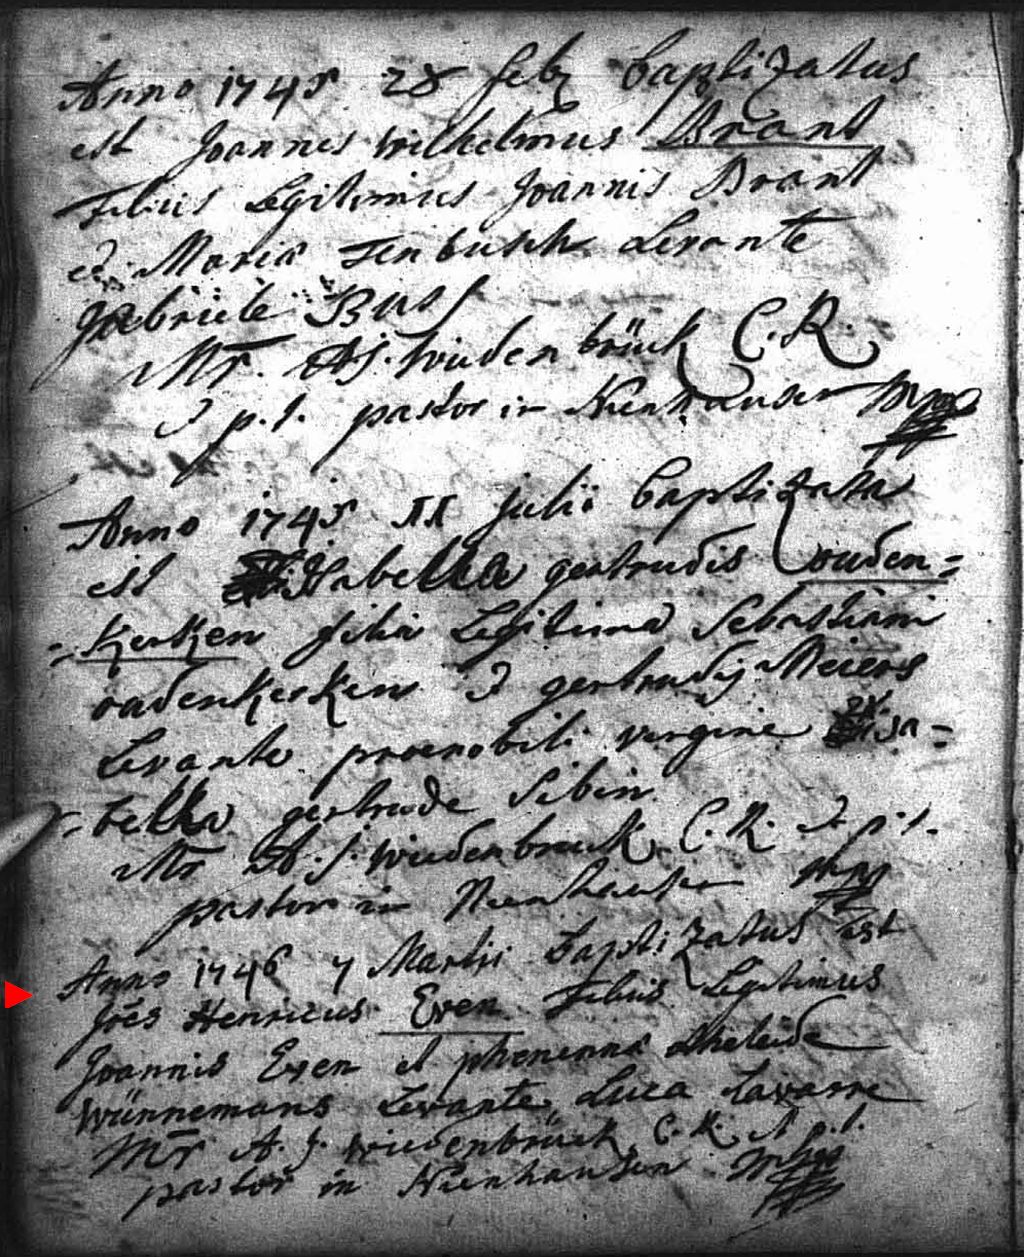 Anno 1745 28 feb baptizatus
est Joannes wilhelmus Brant
Filius Legitimus Joannis Brant
et Maria Tenbusch Levante
gabriele Bus
Mr. A J. Wiedenbrück C. R.
& p. t. pastor in Nienhausen mpp
Anno 1745 11 julii baptizata
est Isabella gertrudis ouden=
=Kerken filia Legitima Sebastiani
oudenkerken & gertrudis Meiers
Levante praenobili virgine Isa=
=bella gertrude Sibin
Mr A. J. wiedenbruck C. R. & p. t.
pastor in Nienhausen mpp
Anno 1746 7 Martii baptizatus est
Joes Henricus Even Filius Legitimus
Joannis Even et Aheleide
Wünnemans Levante Luca Lavarre
Mr A. J. wiedenbrück C. R. & p. t.
pastor in Nienhausen mpp